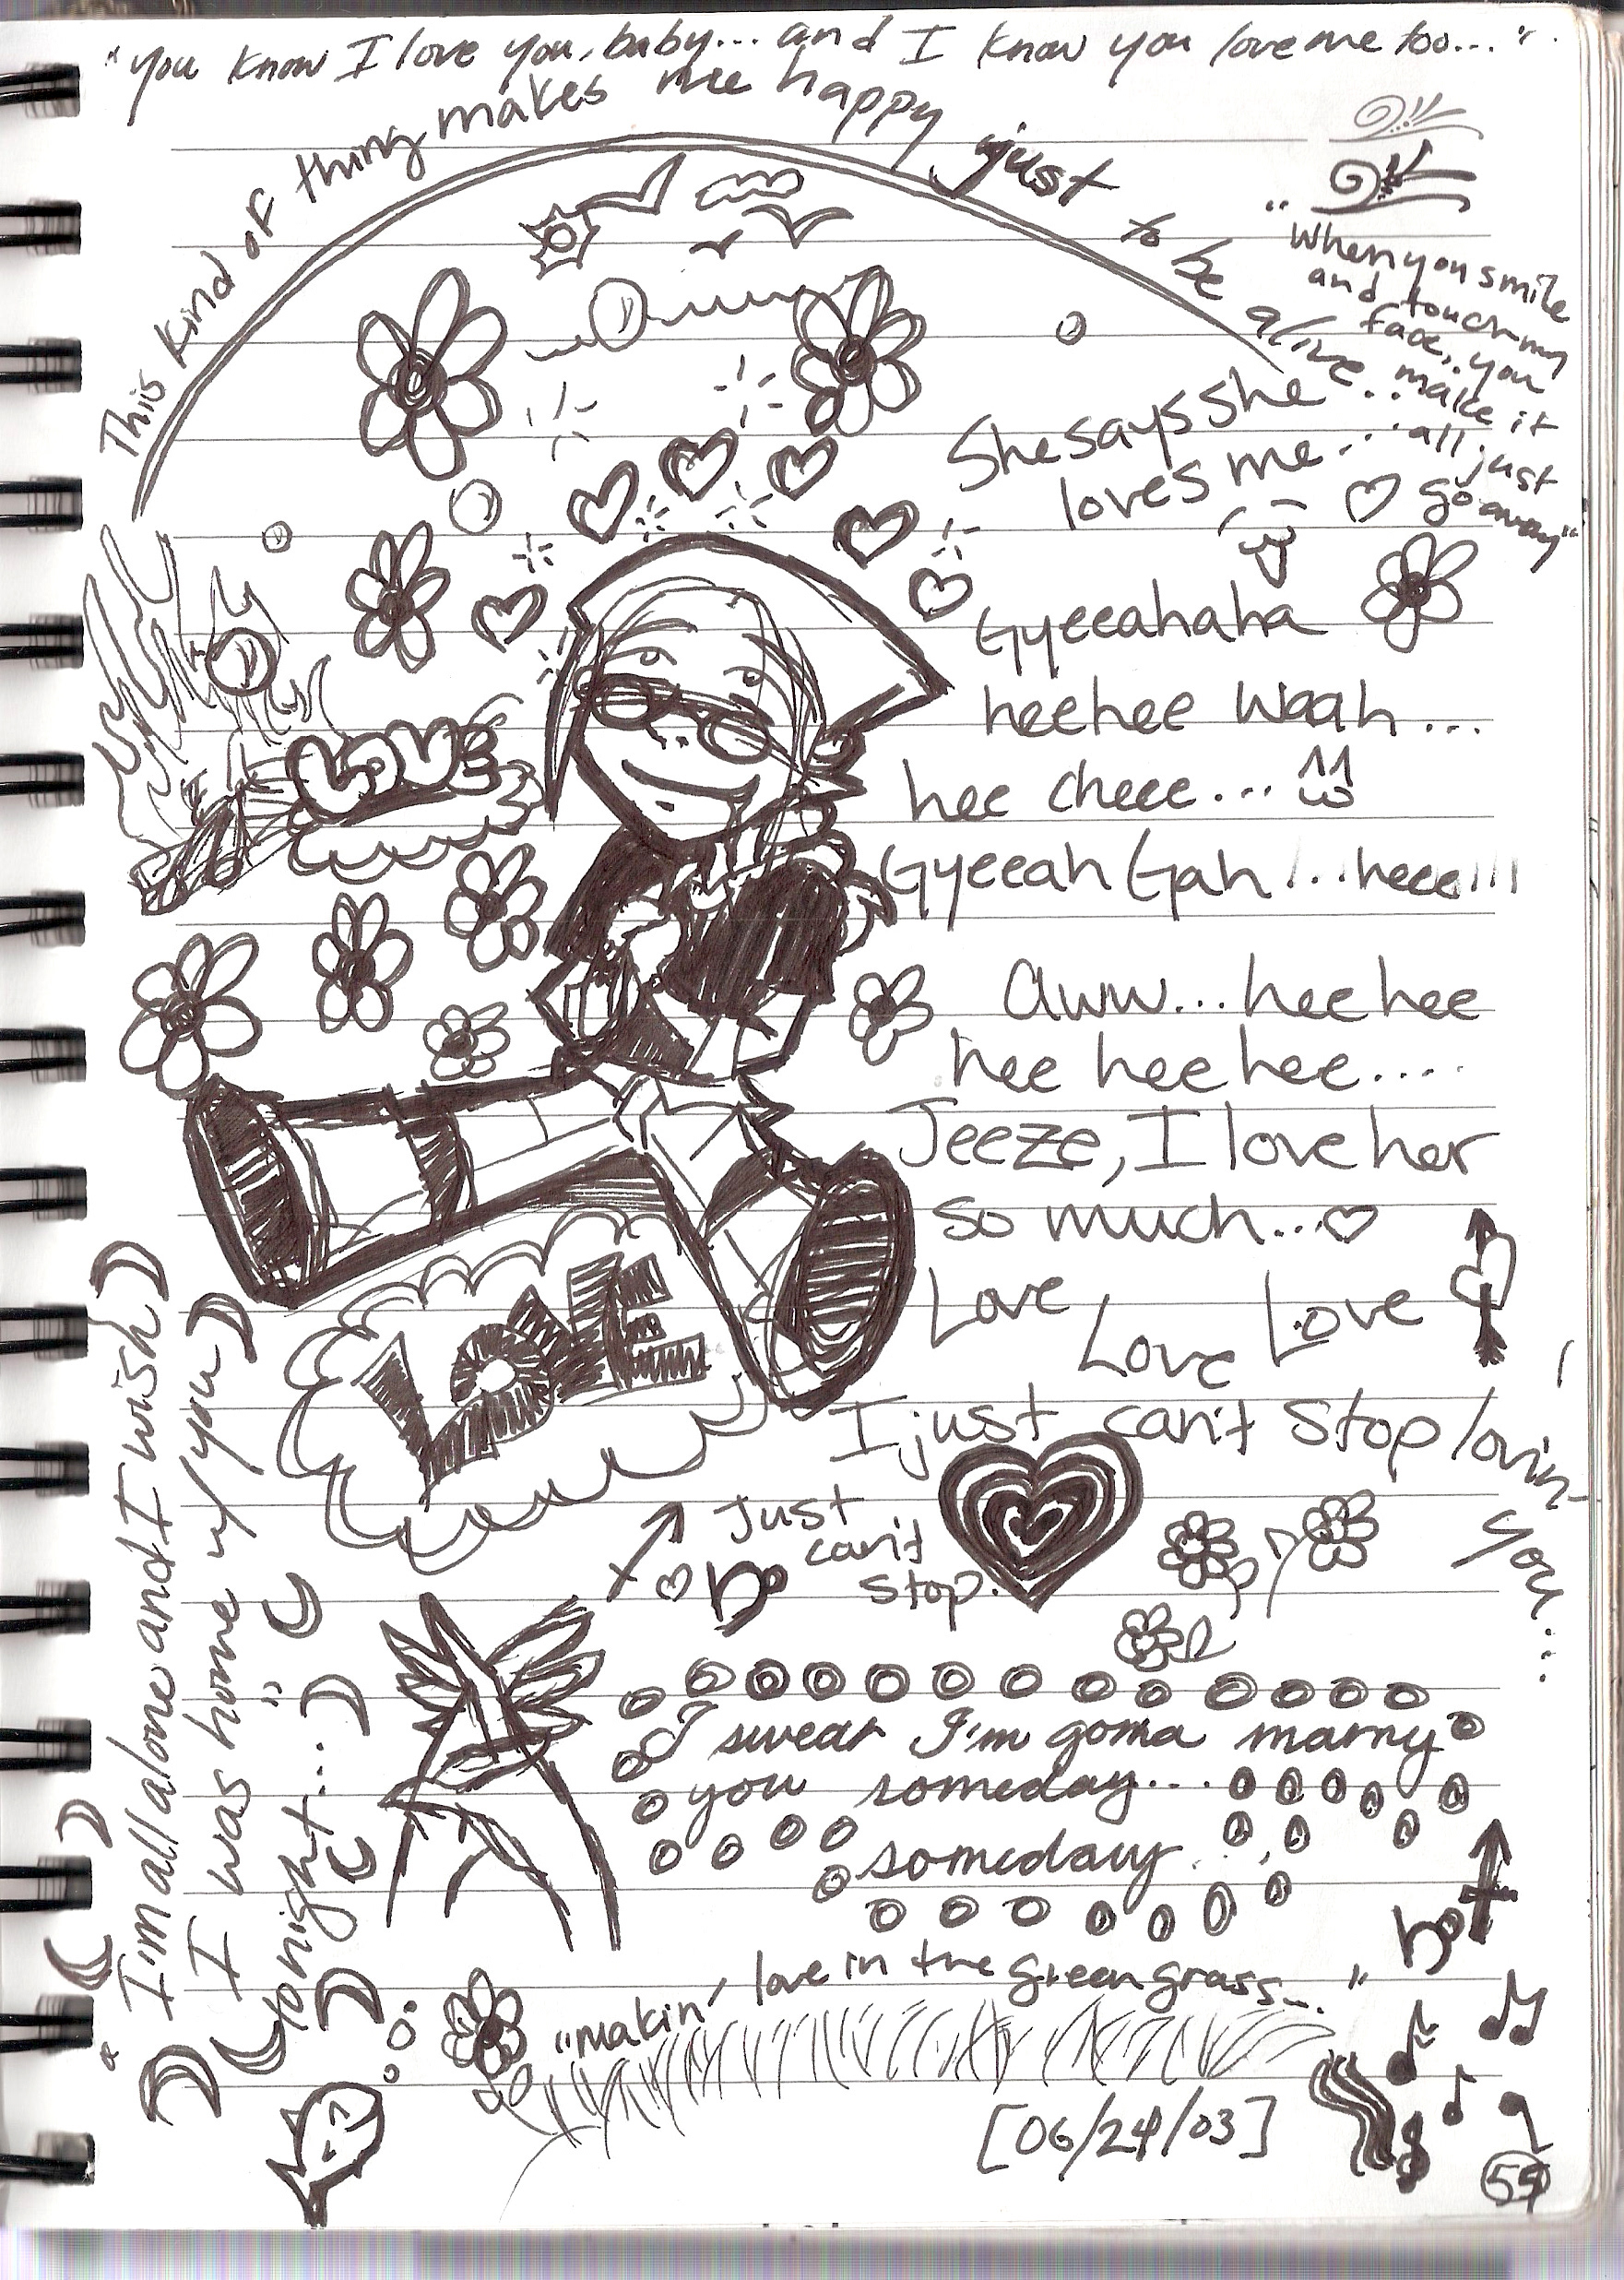 "you know I love you, baby... and I know you love me too..."
This kind of thing makes me happy just to be alive...
"When you smile
and touch my
face, you
make it
all just
go away"
She says she
loves me...
Gyeeahaha
heehee waah...
hee cheee...
Gyeeah Gah!...heee!!!
LOVE
aww...hee hee
hee hee hee....
Jeeze, I love her
so much...♡
Love Love Love
LOVE
I just can't stop lovin
you...
Just
can't
stop.
I swear I'm gonna marry
you someday...
someday...
"I'm all alone and I wish
I was home w/ you"
tonight...
"makin' love in the green grass..."
[06/24/03]